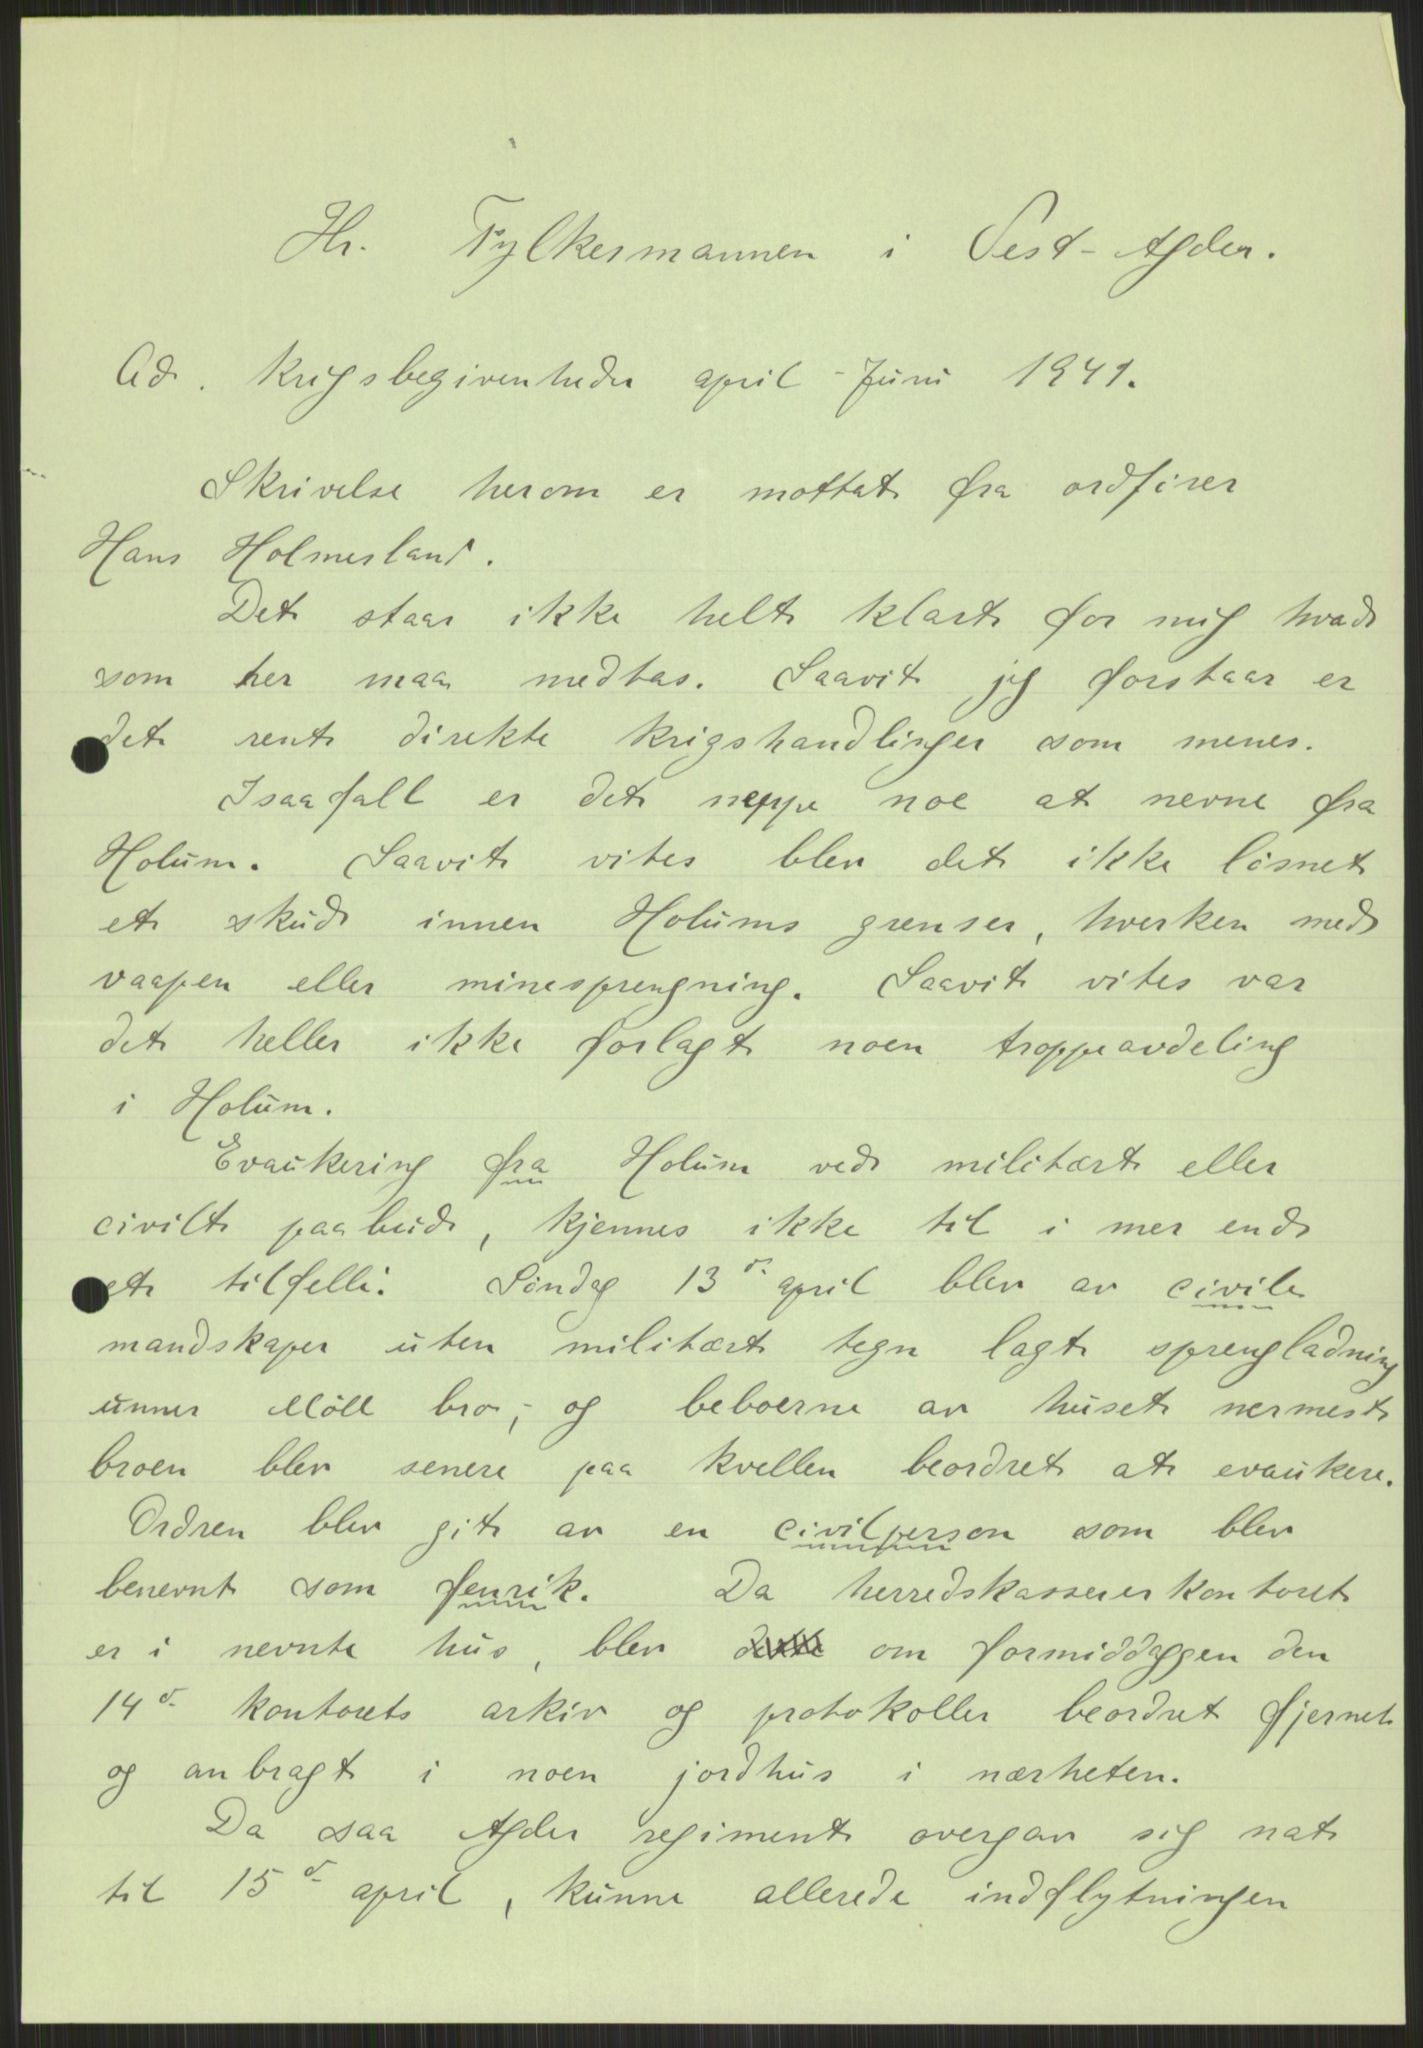 Hr. Fylkesmannen i Vest-Agder.
Ad. Krigsbegivenheder april - Juni 1941.
Skrivelse herom er mottat fra ordfører
Hans Holmesland.
Det staar ikke helt klart for mig hvad
som her maa medtas. Saavit jeg forstaar er
det rent direkte krigshandlinger som menes.
Isaafall er det neppe noe at nevne fra
Holum. Saavit vites blev det ikke løsnet
et skud innen Holums grenser, hverken med
vaapen eller minesprengning. Saavit vites var
det heller ikke forlagt noen troppeavdeling
i Holum.
Evaukering fra Holum ved militært eller
civilt paabud, kjennes ikke til i mer end
et tilfelle: Søndag 13d. april blev av civile
mandskaper uten militært tegn lagt sprengladning
unner Møll bro,- og beboerne av huset nermest
broen blev senere paa kvellen beordret at evaukere.
Ordren blev git av en civilperson som blev
benevnt som fenrik. Da herredskassererkontoret
er i nevnte hus, blev dette om formiddaggen den
14d. kontorets arkiv og protokoller beordret fjernet
og anbragt i noen jordhus i nærheten.
Da saa Agder regiment overgav sig nat
til 15d. april, kunne allerede indflytningen